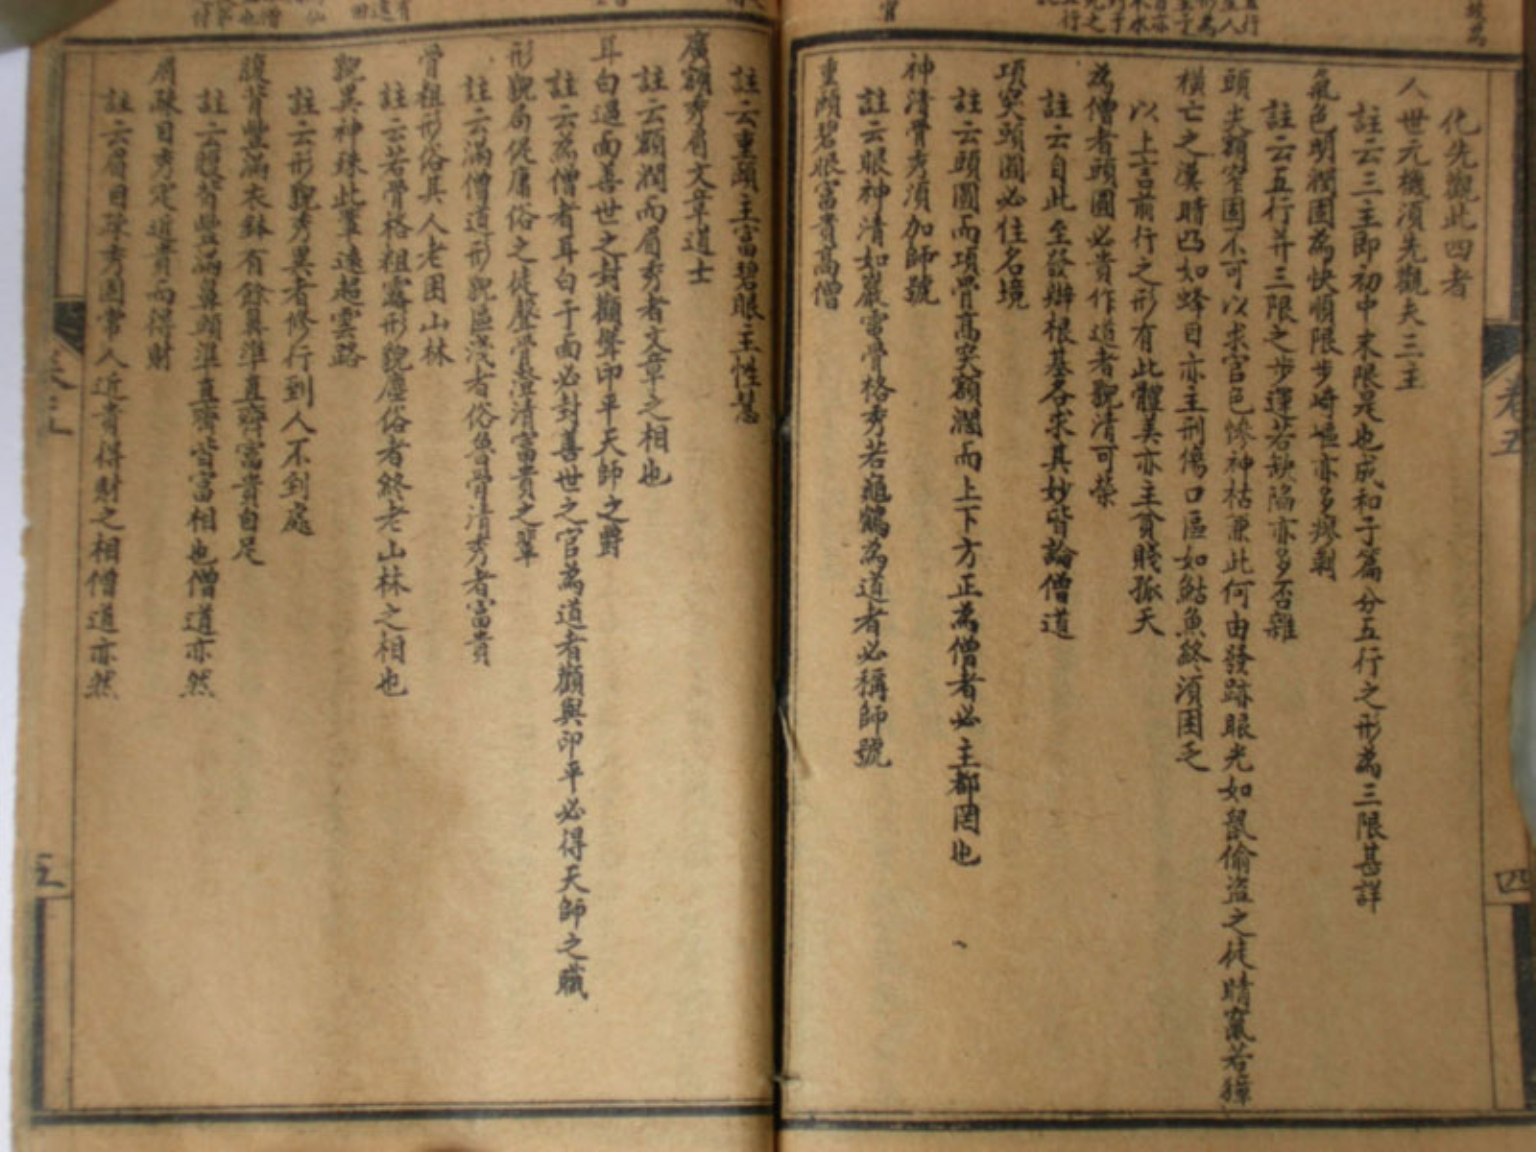 化先觀此四者
人世元機湏先觀夫三主
註云三主即初中末限是也成和子篇分五行之形為三限甚詳
氣色明潤固為快順限步崎嶇亦多療剝
註云五行并三限之步運若缺陷亦多否雜
頭尖額窄固不可以求官色慘神枯兼此何由發跡眼光如鼠偷盜之徒睛竄若獐
橫亡之漢睛凸如蜂目亦主刑傷口區如鮎魚終湏困乏
以上言前行之形有此體美亦主貧賤孤夭
為僧者頭圓必貴作道者貌清可榮
註云自此至發辦根基各求其妙皆論僧道
項突頭圓必住名境
註云頭圓而項骨高突額濶而上下方正為僧者必主都罔也
神清骨秀湏加師號
註云眼神清如巖電骨格秀若龜鶴為道者必稱師號
重頤碧眼富貴高僧
卷五
四
註云重頤主富碧眼主性慧
廣額秀眉文章道士
註云額潤而眉秀者文章之相也
耳白過面善世之封顴聳印平天師之爵
註云為僧者耳白于面必封善世之官為道者顴與印平必得天師之職
形貌局促庸俗之徒聲骨澄清富貴之輩
註云滿僧道形貌區淺者俗魯骨清秀者富貴
骨粗形俗其人老困山林
註云若骨格粗露形貌塵俗者終老山林之相也
貌異神殊此輩遠超雲路
註云形貌秀異者修行到人不到處
腹背豐滿衣鉢有餘鼻準直齊富貴自足
註云腹背豐滿鼻頭準直齊皆富相也僧道亦然
眉疎目秀定近貴而得財
註云眉目疎秀固常人近貴得財之相僧道亦然
五